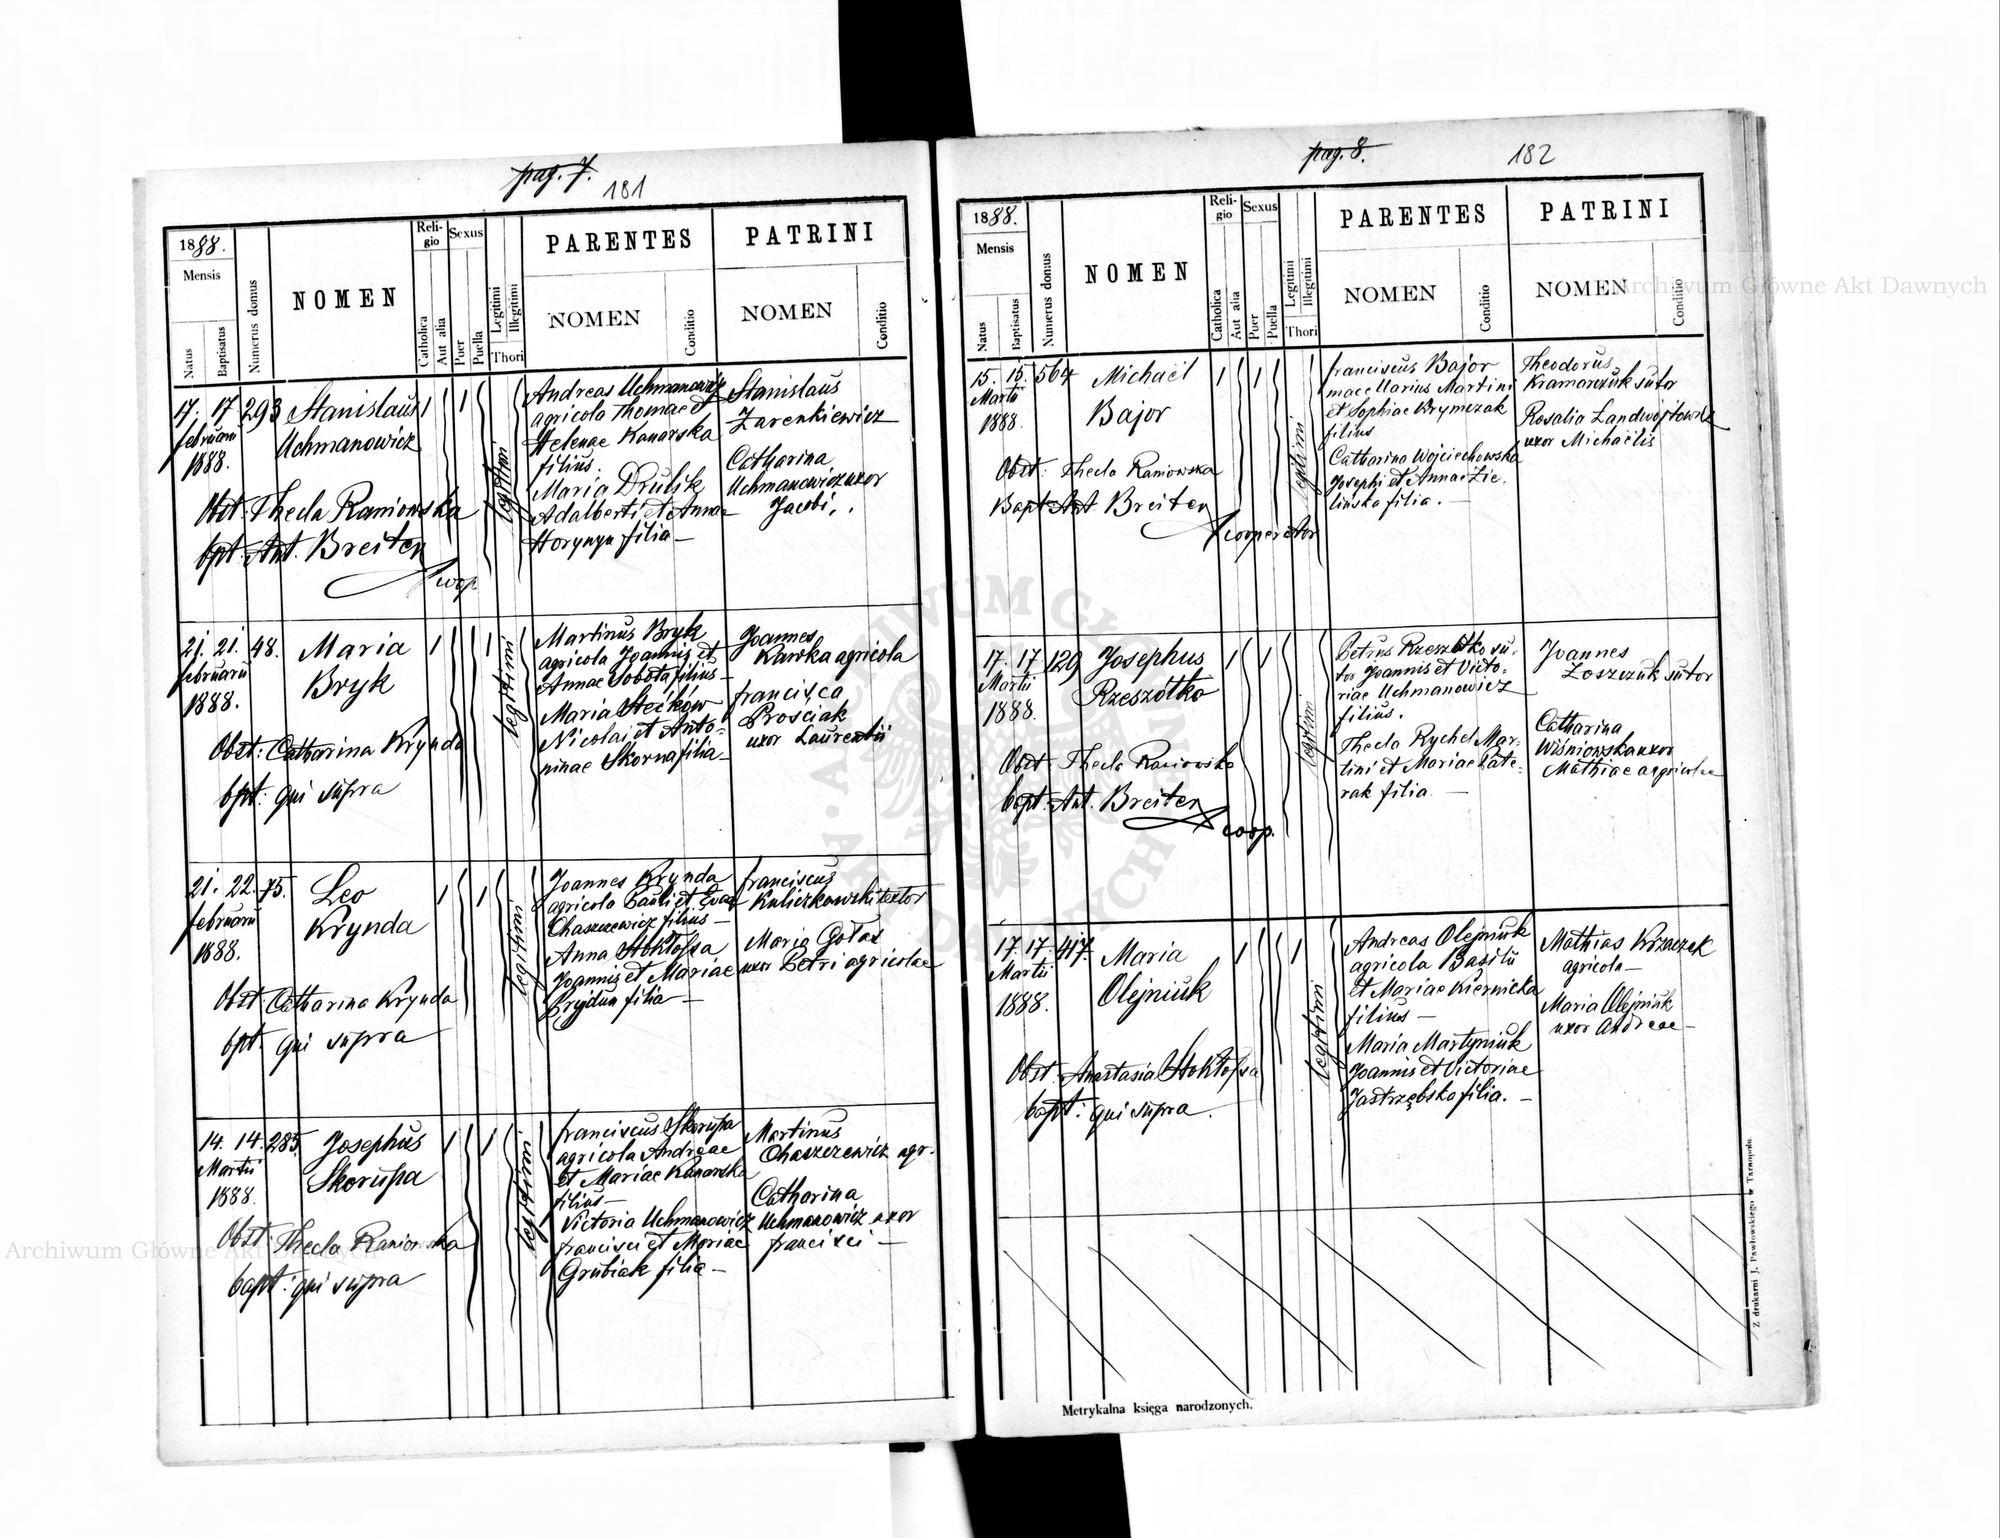 pag. 7.
181
1888.
Mensis
Natus
Baptisatus
Numerus domus
NOMEN
Religio
Catholica
Aut alia
Sexus
Puer
Puella
Legitimi
Illegitimi
Thori
PARENTES
NOMEN
Conditio
PATRINI
NOMEN
Conditio
17. 17
februarii
1888.
293
Stanislaus
Uchmanowicz
Obst: Thecla Raniowska
bpt. Ant. Breiter
coop.
1
1
legitimi
Andreas Uchmanowicz
agricola Thomae et
Helenae Kanarska
filius.
Maria Drulik
Adalberti et Annae
Horynyn filia —
Stanislaus
Zarenkiewicz
Catharina
Uchmanowicz uxor
Jacobi
21. 21.
februarii
1888.
48.
Maria
Bryk
Obst: Catharina Krynda
bpt: qui supra
1
1
legitimi
Martinus Bryk
agricola Joannis et
Annae Sobota filius —
Maria Stećków
Nicolai et Anto-
ninae Skorna filia —
Joannes
Kawka agricola
francisca
Prościak
uxor Laurentii
21. 22.
februarii
1888.
75.
Leo
Krynda
Obst: Catharina Krynda
bpt. qui supra
1
1
legitimi
Joannes Krynda
agricola Pauli et Evae
Chaszczewicz filius —
Anna Stokłosa
Joannis et Mariae
Prydun filia —
franciscus
Kuliczkowski textor
Maria Gołas
uxor Petri agricolae
14. 14.
Martii
1888.
285.
Josephus
Skorupa
Obst: Thecla Raniowska
bapt: qui supra
1
1
legitimi
franciscus Skorupa
agricola Andreae
et Mariae Kanarska
filius —
Victoria Uchmanowicz
francisci et Mariae
Grubiak filia —
Martinus
Chaszczewicz agr.
Catharina
Uchmanowicz uxor
francisci —
pag. 8.
182
1888.
Mensis
Natus
Baptisatus
Numerus domus
NOMEN
Religio
Catholica
Aut alia
Sexus
Puer
Puella
Legitimi
Illegitimi
Thori
PARENTES
NOMEN
Conditio
PATRINI
NOMEN
Conditio
15. 15.
Martii
1888.
564
Michaël
Bajor
Obst: Thecla Raniowska
Bapt: Ant. Breiter
cooperator
1
1
legitimi
franciscus Bajor
macellarius Martini
et Sophiae Krymczak
filius
Catharina Wojciechowska
Josephi et Annae Zie-
lińska filia. —
Theodorus
Kramarczuk sutor
Rosalia Landwójtowicz
uxor Michaëlis
17. 17.
Martii
1888.
129
Josephus
Rzeszótko
Obst: Thecla Raniowska
bapt: Ant. Breiter
coop.
1
1
legitimi
Petrus Rzeszótko su-
tor Joannis et Victo-
riae Uchmanowicz
filius.
Thecla Rychel Mar-
tini et Mariae Pate-
rak filia —
Joannes
Łoszczuk sutor
Catharina
Wiśniowska uxor
Mathiae agricolae
17. 17.
Martii
1888.
417.
Maria
Olejniuk
Obst. Anastasia Stokłosa
bapt: qui supra.
1
1
legitimi
Andreas Olejniuk
agricola Basilii
et Mariae Kiernicka
filius —
Maria Martyniuk
Joannis et Victoriae
Jastrzębska filia. —
Mathias Krzaczek
agricola —
Maria Olejniuk
uxor Andreae —
Metrykalna księga narodzonych.
Z drukarni J. Pawłowskiego w Tarnopolu.
Archiwum Główne Akt Dawnych
Archiwum Główne Akt Dawnych
ARCHIWUM GŁÓWNE AKT DAWNYCH